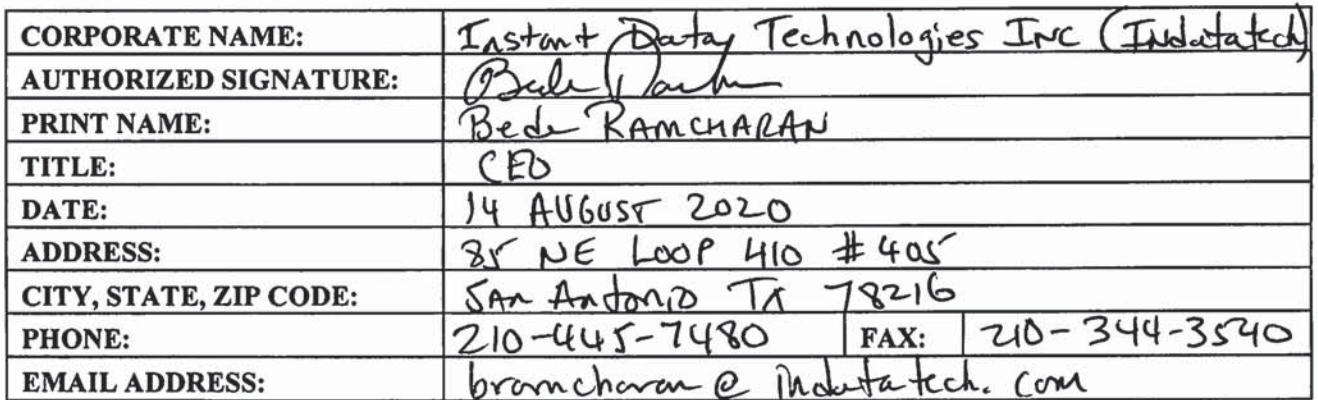 CORPORATE NAME: Instant Data Technologies Inc (Indatatech)
AUTHORIZED SIGNATURE:
PRINT NAME: Bede RAMCHARAN
TITLE: CEO
DATE: 14 AUGUST 2020
ADDRESS: 85 NE LOOP 410 #405
CITY, STATE, ZIP CODE: SAn Antonio TX 78216
PHONE: 210-445-7480 FAX: 210-344-3540
EMAIL ADDRESS: bramcharan@indatatech.com